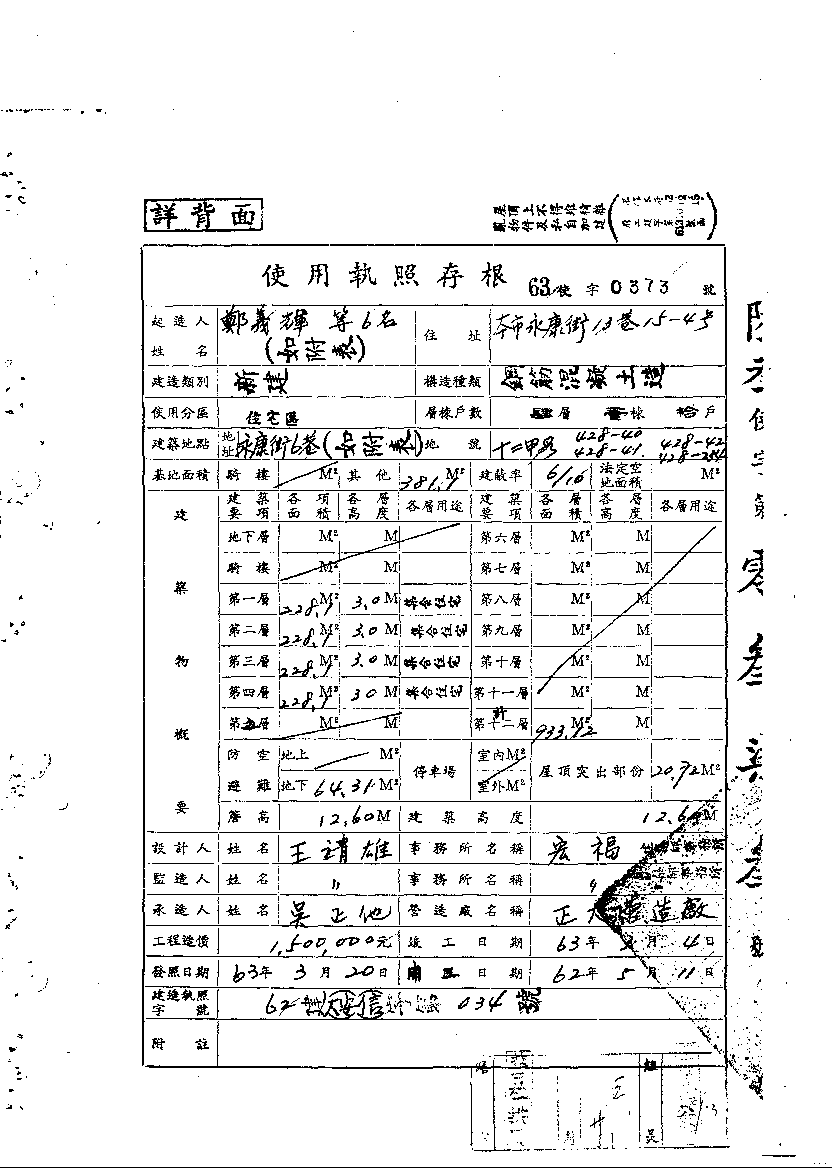 詳背面
使用執照存根 63使字0373號
起造人姓名 鄭義輝等6名(如附表) 住址 本市永康街13巷15-4号
建造類別 新建 構造種類 鋼筋混凝土造
使用分區 住宅區 層棟戶數 層 棟 拾戶
建築地點 地址 永康街6巷(如附表) 地號 428-40 428-41 428-42
基地面積 騎樓 M² 其他 381.9 M² 建蔽率 6/10 法定空地面積 M²
建築物概要
建築要項 各項面積 各層高度 各層用途 建築要項 各層面積 各層高度 各層用途
地下層 M² M 第六層 M² M
騎樓 M² M 第七層 M² M
第一層 228.9 M² 3.0 M 集合住宅 第八層 M² M
第二層 228.9 M² 3.0 M 集合住宅 第九層 M² M
第三層 228.9 M² 3.0 M 集合住宅 第十層 M² M
第四層 228.9 M² 3.0 M 集合住宅 第十一層 M² M
第五層 M² M 第十二層 計 933.92 M² M
防空避難 地上 M² 停車場 室內M² 屋頂突出部份 20.72 M²
地下 64.31 M² 室外M²
簷高 12.60 M 建築高度 12.60 M
設計人 姓名 王靖雄 事務所名稱 宏福
監造人 姓名 〃 事務所名稱 〃
承造人 姓名 吳正他 營造廠名稱 正大營造廠
工程造價 1,500,000元 竣工日期 63年 月4日
發照日期 63年3月20日 開工日期 62年5月11日
建造執照字號 62 034號
附註